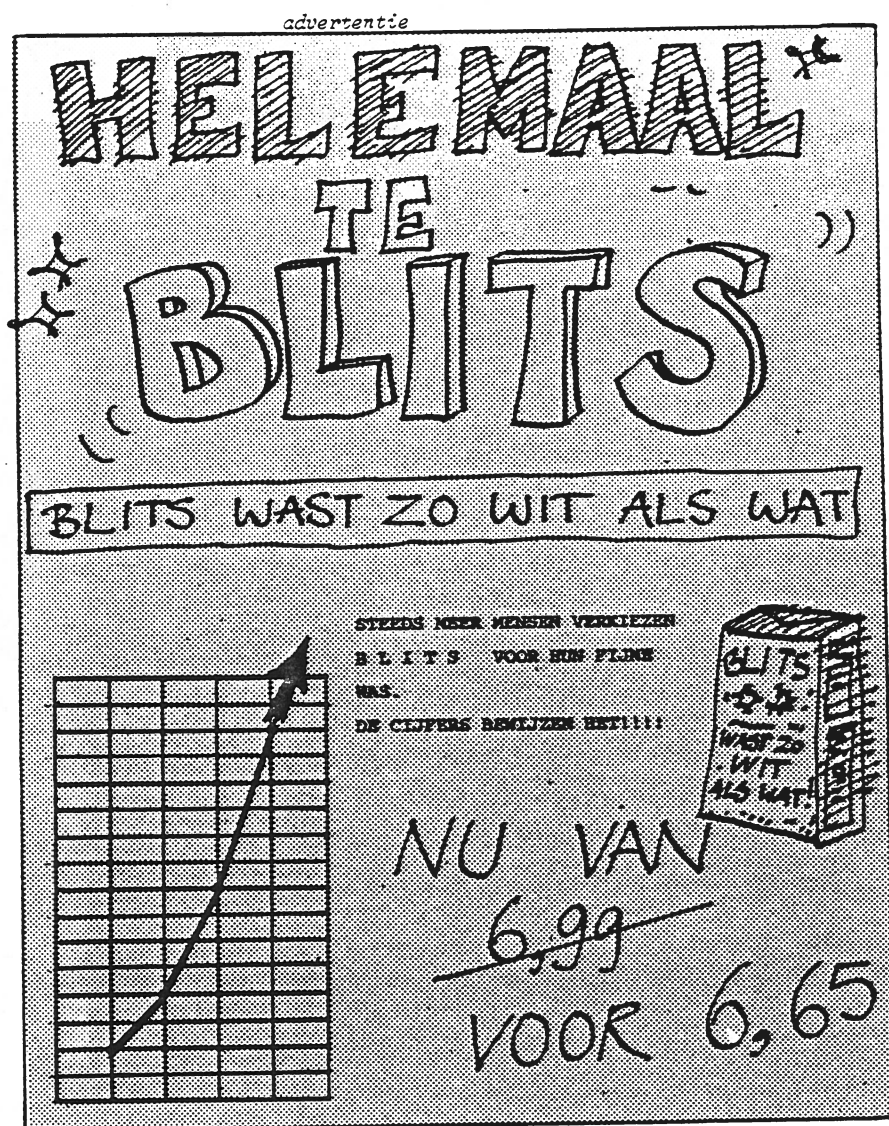 advertentie
HELEMAAL
TE
BLITS
BLITS WAST ZO WIT ALS WAT
STEEDS MEER MENSEN VERKIEZEN
B L I T S VOOR HUN FIJNE
WAS.
DE CIJFERS BEWIJZEN HET!!!!
BLITS
WAST ZO
WIT
ALS WAT!
NU VAN
6,99
VOOR 6,65